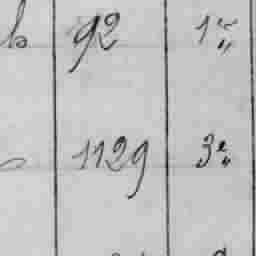 92 1er
1129 3e